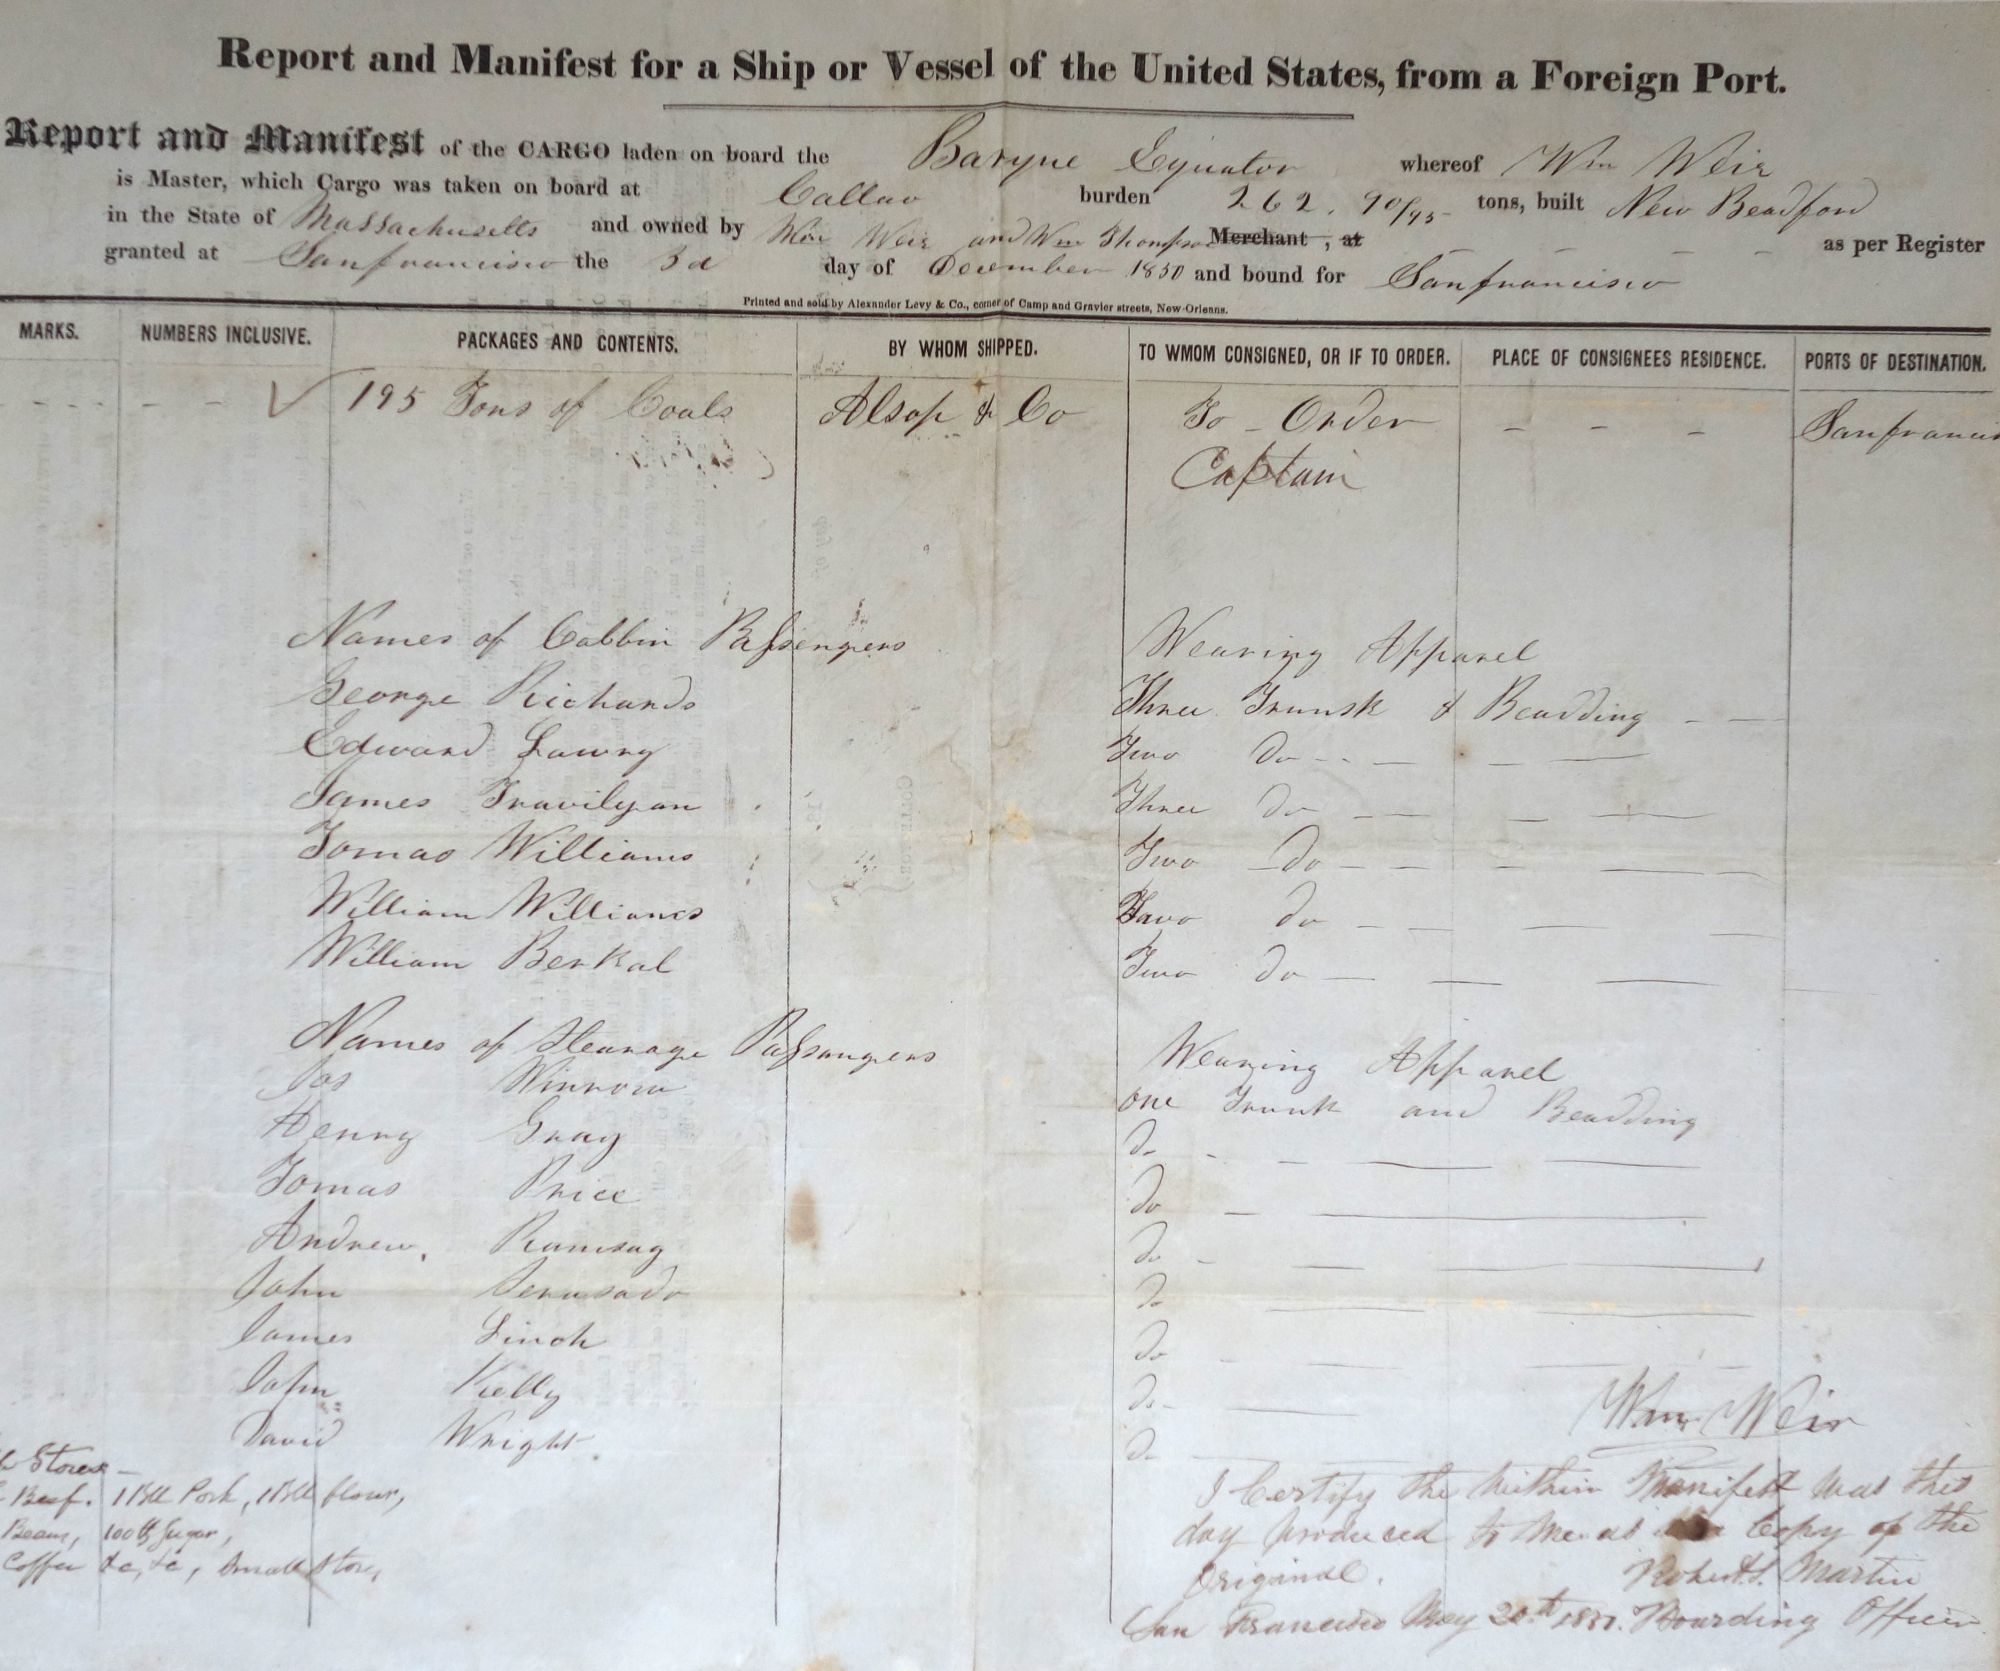 Report and Manifest for a Ship or Vessel of the United States, from a Foreign Port.
Report and Manifest of the CARGO laden on board the Barque Equator whereof Wm Weir
is Master, which Cargo was taken on board at Callao burden 262. 90/95 tons, built New Beadford
in the State of Massachusetts and owned by Wm Weir and Wm Thompson Merchant, at as per Register
granted at Sanfrancisco the 3d day of December 1850 and bound for Sanfrancisco
Printed and sold by Alexander Levy & Co., corner of Camp and Gravier streets, New-Orleans.
MARKS. NUMBERS INCLUSIVE. PACKAGES AND CONTENTS. BY WHOM SHIPPED. TO WMOM CONSIGNED, OR IF TO ORDER. PLACE OF CONSIGNEES RESIDENCE. PORTS OF DESTINATION.
195 Tons of Coals Alsop & Co To Order Sanfrancis
Captain
Names of Cabbin Passengers Wearing Apparel
George Richards Three Trunsk & Beadding
Edward Lawry Two Do
James Travilyan Three Do
Tomas Williams Two Do
William Williams Two do
William Berkal Two Do
Names of Stearage Passangers Wearing Apparel
Jas Winrow one Trunk and Beadding
Henry Gray Do
Tomas Price Do
Andrew Ramsay Do
John Do
James Linch Do
John Kielly Do
David Wright Do
Wm Weir
Stores
Beef. 1 Bbl Pork, 1 Bbl flour,
Beans, 100 lb Sugar,
Coffee &c, &c, Small Stores,
I Certify the within Manifest was this
day produced to me as a Copy of the
Original.
Robert S. Martin
San Francisco May 20th 1851. Boarding Officer